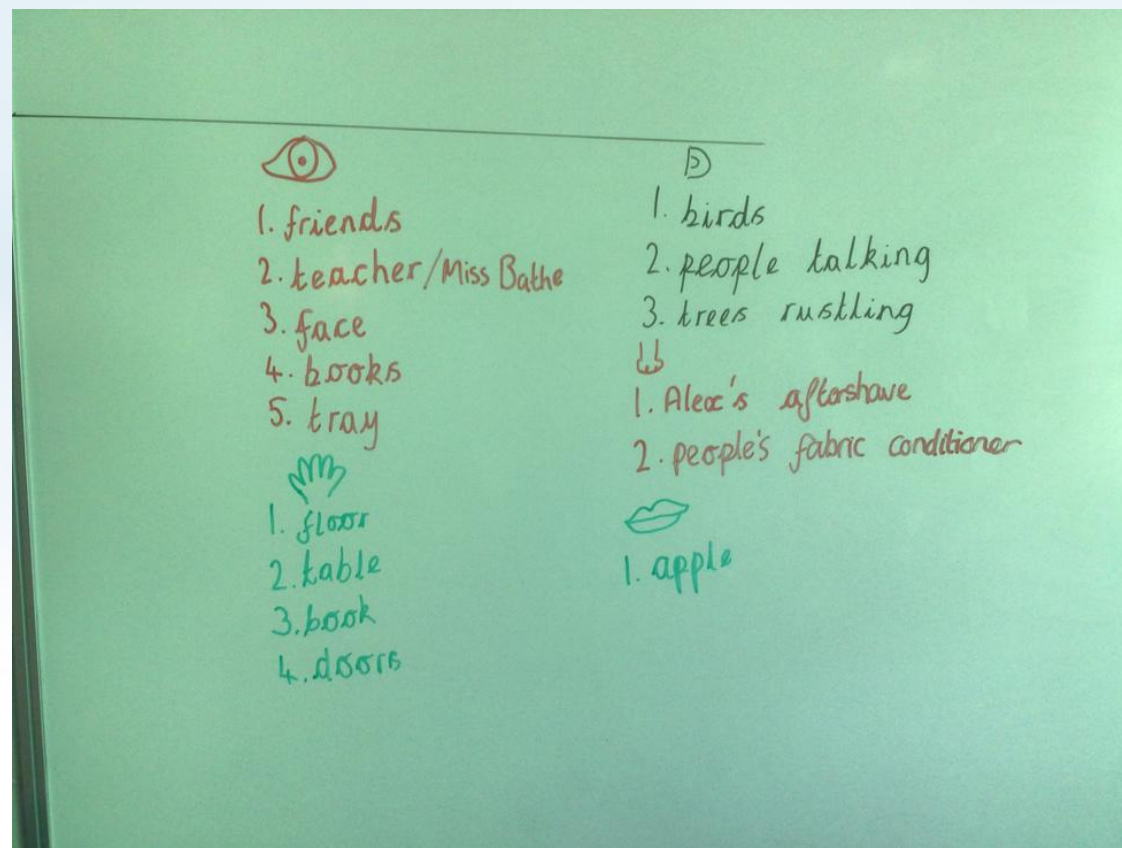 1. friends
2. teacher/Miss Bathe
3. face
4. books
5. tray
1. floor
2. table
3. book
4. doors
1. birds
2. people talking
3. trees rustling
1. Alex's aftershave
2. people's fabric conditioner
1. apple